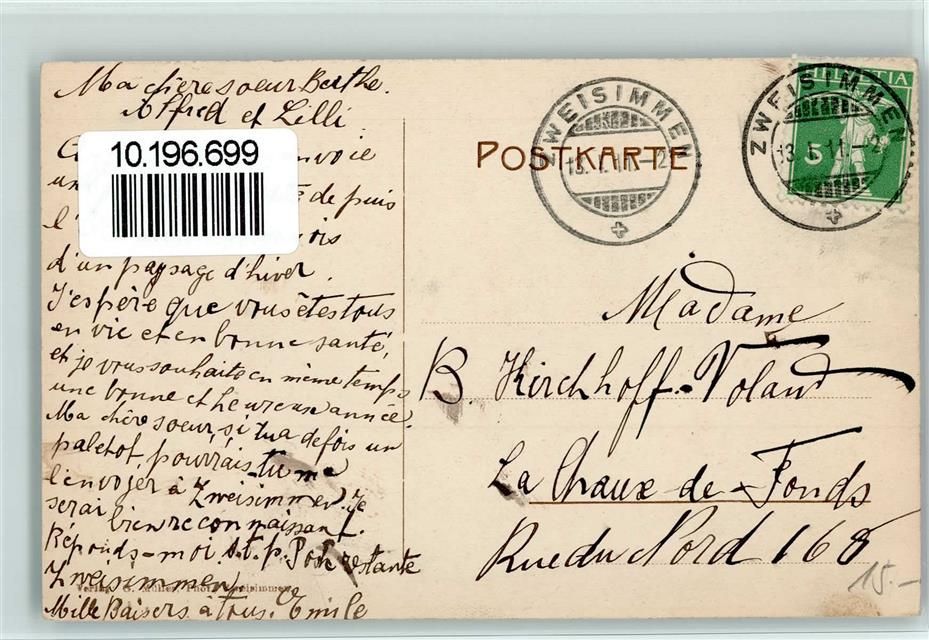 Ma chère soeur Berthe.
Alfred et Lilli
10.196.699
envoie
un de puis
l'
d'un paysage d'hiver.
J'espère que vous êtes tous
en vie et en bonne santé,
et je vous souhaite en même temps
une bonne et heureuse année.
Ma chère soeur, si tu a de fois un
paletot, pourrais-tu me
l'envoyer à Zweisimmen. Je
serai bien reconnaissant.
Réponds-moi s.t.p. Poste restante
Zweisimmen
Mille Baisers à tous. Emile
Verlag G. Müller, Phot. Zweisimmen
POSTKARTE
ZWEISIMMEN
13. I. 11.-2
HELVETIA
5
ZWEISIMMEN
13. I. 11.-2
Madame
B. Kirchhoff-Voland
La Chaux-de-Fonds
Rue du Nord 168
15.-